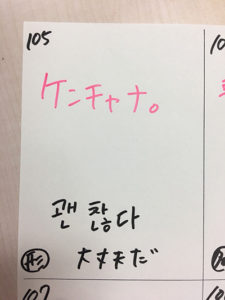 105
ケンチャナ。
괜찮다
大丈夫だ
107
10